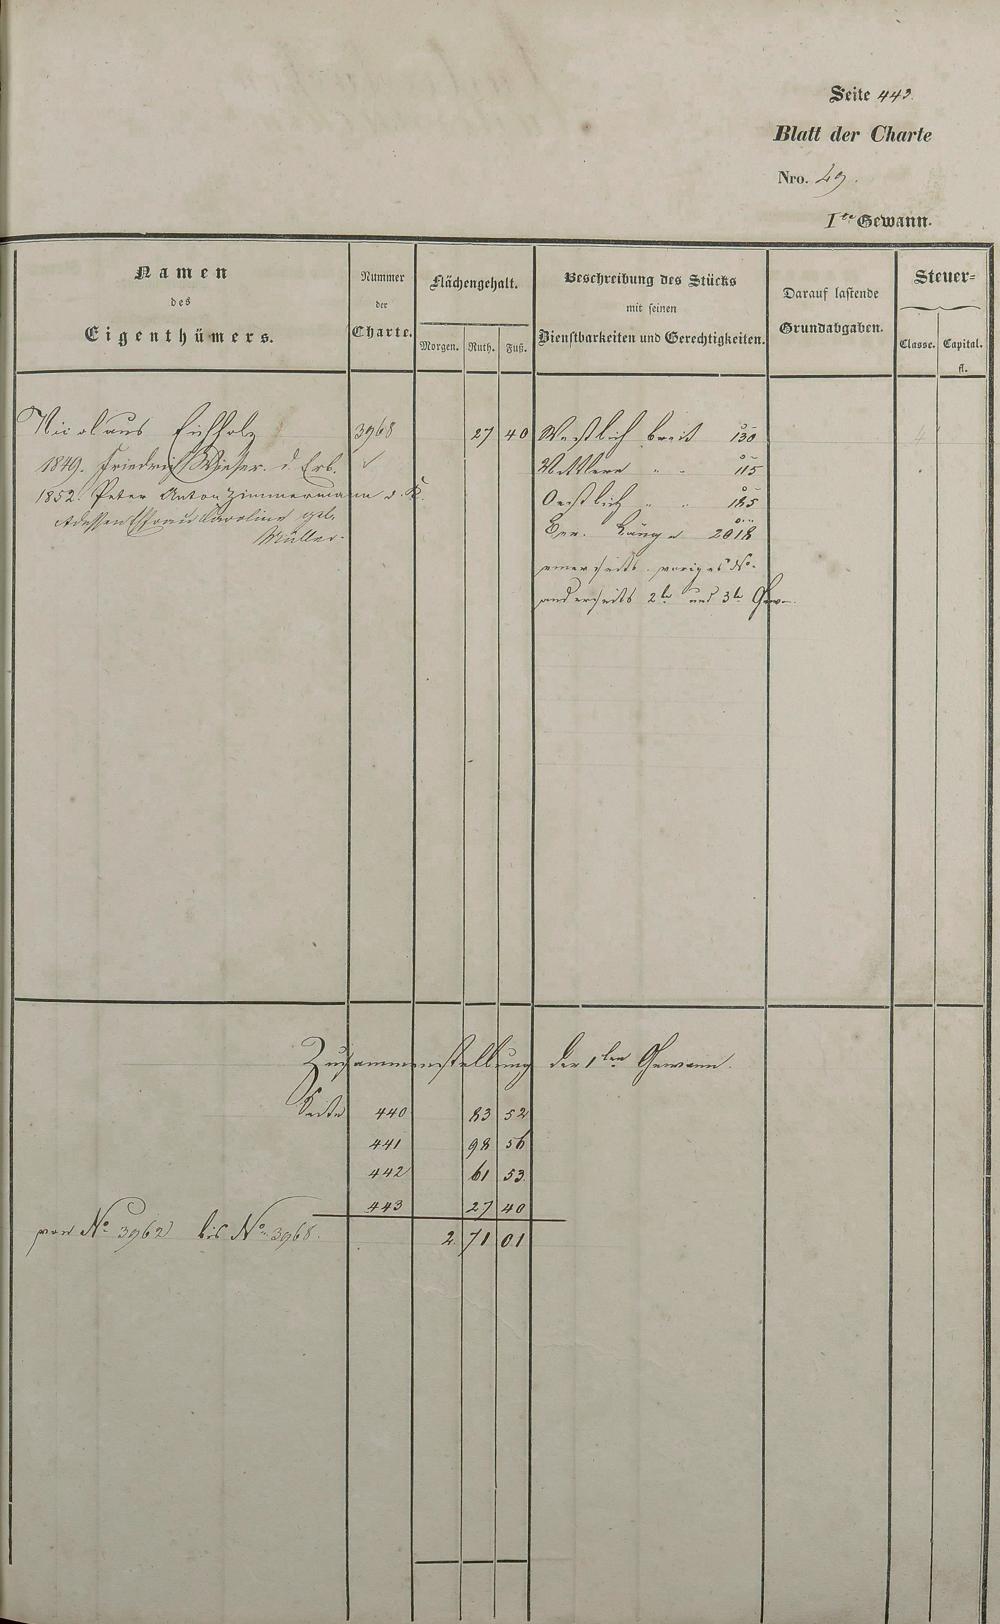 Seite 443.
Blatt der Charte
Nro. 49.
1te Gewann.
Namen
des
Eigenthümers.
Nummer
der
Charte.
Flächengehalt.
Morgen. Ruth. Fuß.
Beschreibung des Stücks
mit seinen
Dienstbarkeiten und Gerechtigkeiten.
Darauf lastende
Grundabgaben.
Steuer=
Classe. Capital.
fl.
Nicolaus Eichholz 3968 27 40 Westlich breit 130
1849. Friedrich Wieser. d. Erb. Mittlere " " 115
1852. Peter Anton Zimmermann d. K. Oestlich " " 185
dessen Ehfrau Caroline geb. Ber. Länge 2018
Müller.
einerseits voriges No.
anderseits 2te und 3te Gew.
Zusammenstellung der 1ten Gewann.
Seite 440 83 52
441 98 56
442 61 53
443 27 40
von No 3962 bis No 3968. 2. 71 01